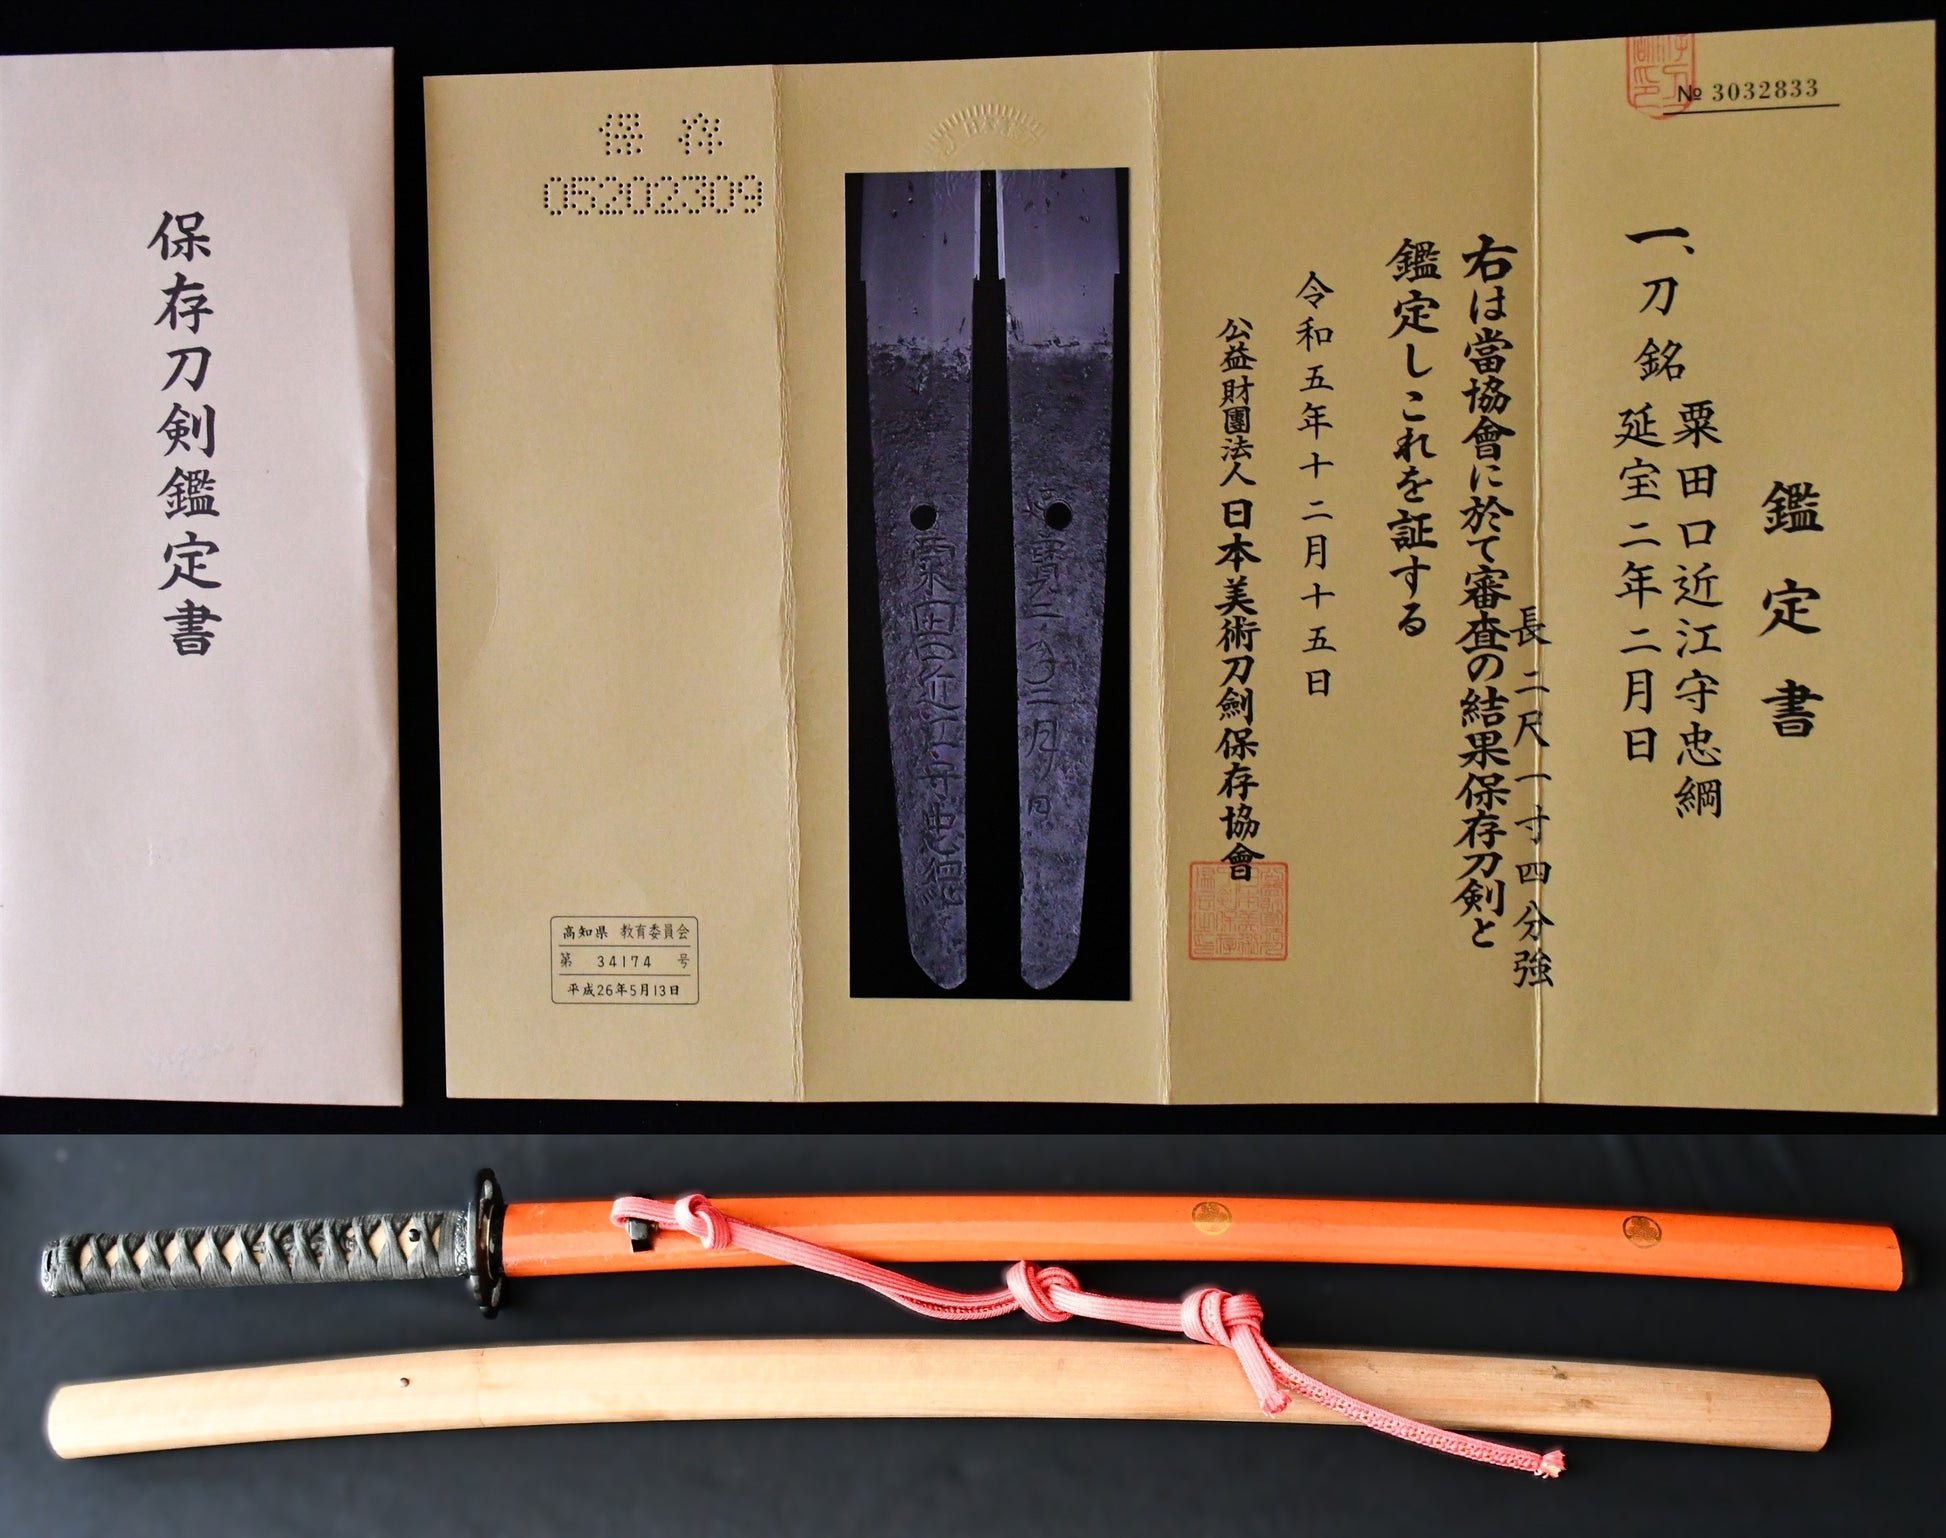 保存刀剣鑑定書
No 3032833
鑑定書
一、刀 銘 粟田口近江守忠綱
延宝二年二月日
長二尺一寸四分強
右は當協會に於て審査の結果保存刀剣と
鑑定しこれを証する
令和五年十二月十五日
公益財團法人 日本美術刀劍保存協會
粟田口近江守忠綱
二月日
保存
05202309
高知県 教育委員会
第 34174 号
平成26年5月13日